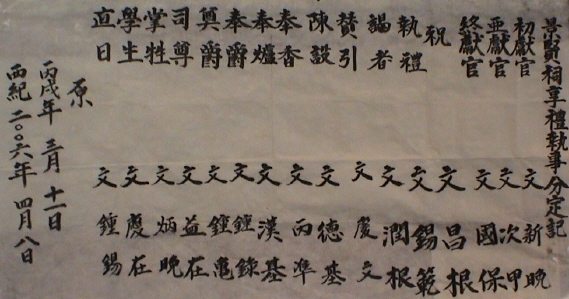 景賢祠享禮執事分定記
初獻官 文 新晩
亞獻官 文 次甲
終獻官 文 國保
祝 文 昌根
執禮 文 錫範
謁者 文 潤根
贊引 文 慶文
陳設 文 德基
奉香 文 丙準
奉爐 文 漢基
奉爵 文 鍾錬
奠爵 文 鍾龜
司尊 文 益在
掌牲 文 炳晩
學生 文 慶在
直日 文 鍾錫
原
丙戌年 三月 十一日
西紀 二〇〇六年 四月 八日